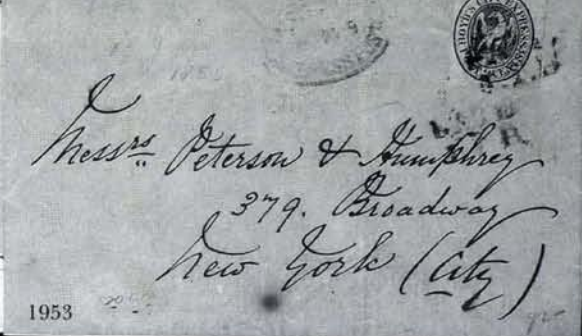 BOYD'S CITY EXPRESS
Messrs Peterson & Humphrey
379. Broadway
New York (City)
1953